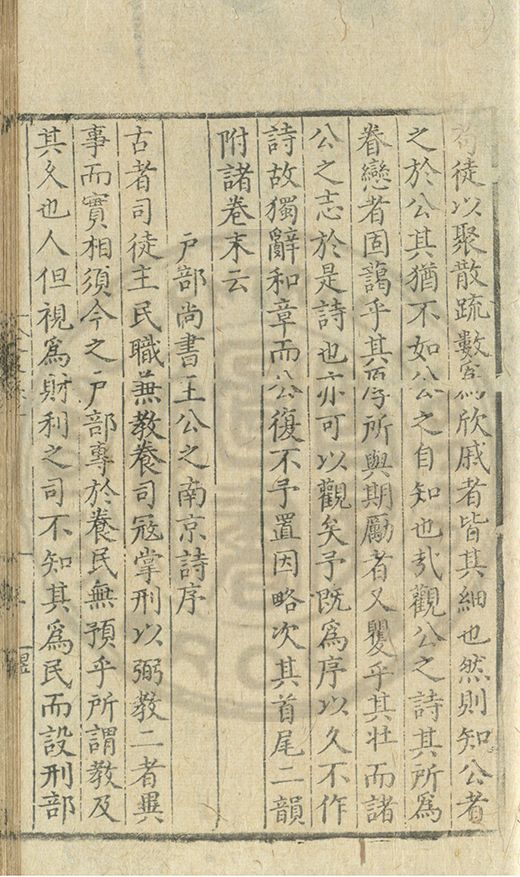 徒以聚散疏數爲欣戚者皆其細也然則知公者
之於公其猶不如公之自知也㢤觀公之詩其所爲
眷戀者固藹乎其厚所與期勵者又矍乎其壯而諸
公之志於是詩也亦可以觀矣予旣爲序以久不作
詩故獨辭和章而公復不予置因略次其首尾二韻
附諸卷末云
戶部尚書王公之南京詩序
古者司徒主民職蕪教養司冦掌刑以弼教二者異
事而實相須今之戶部專於養民無預乎所謂教及
其久也人但視爲財利之司不知其爲民而設刑部